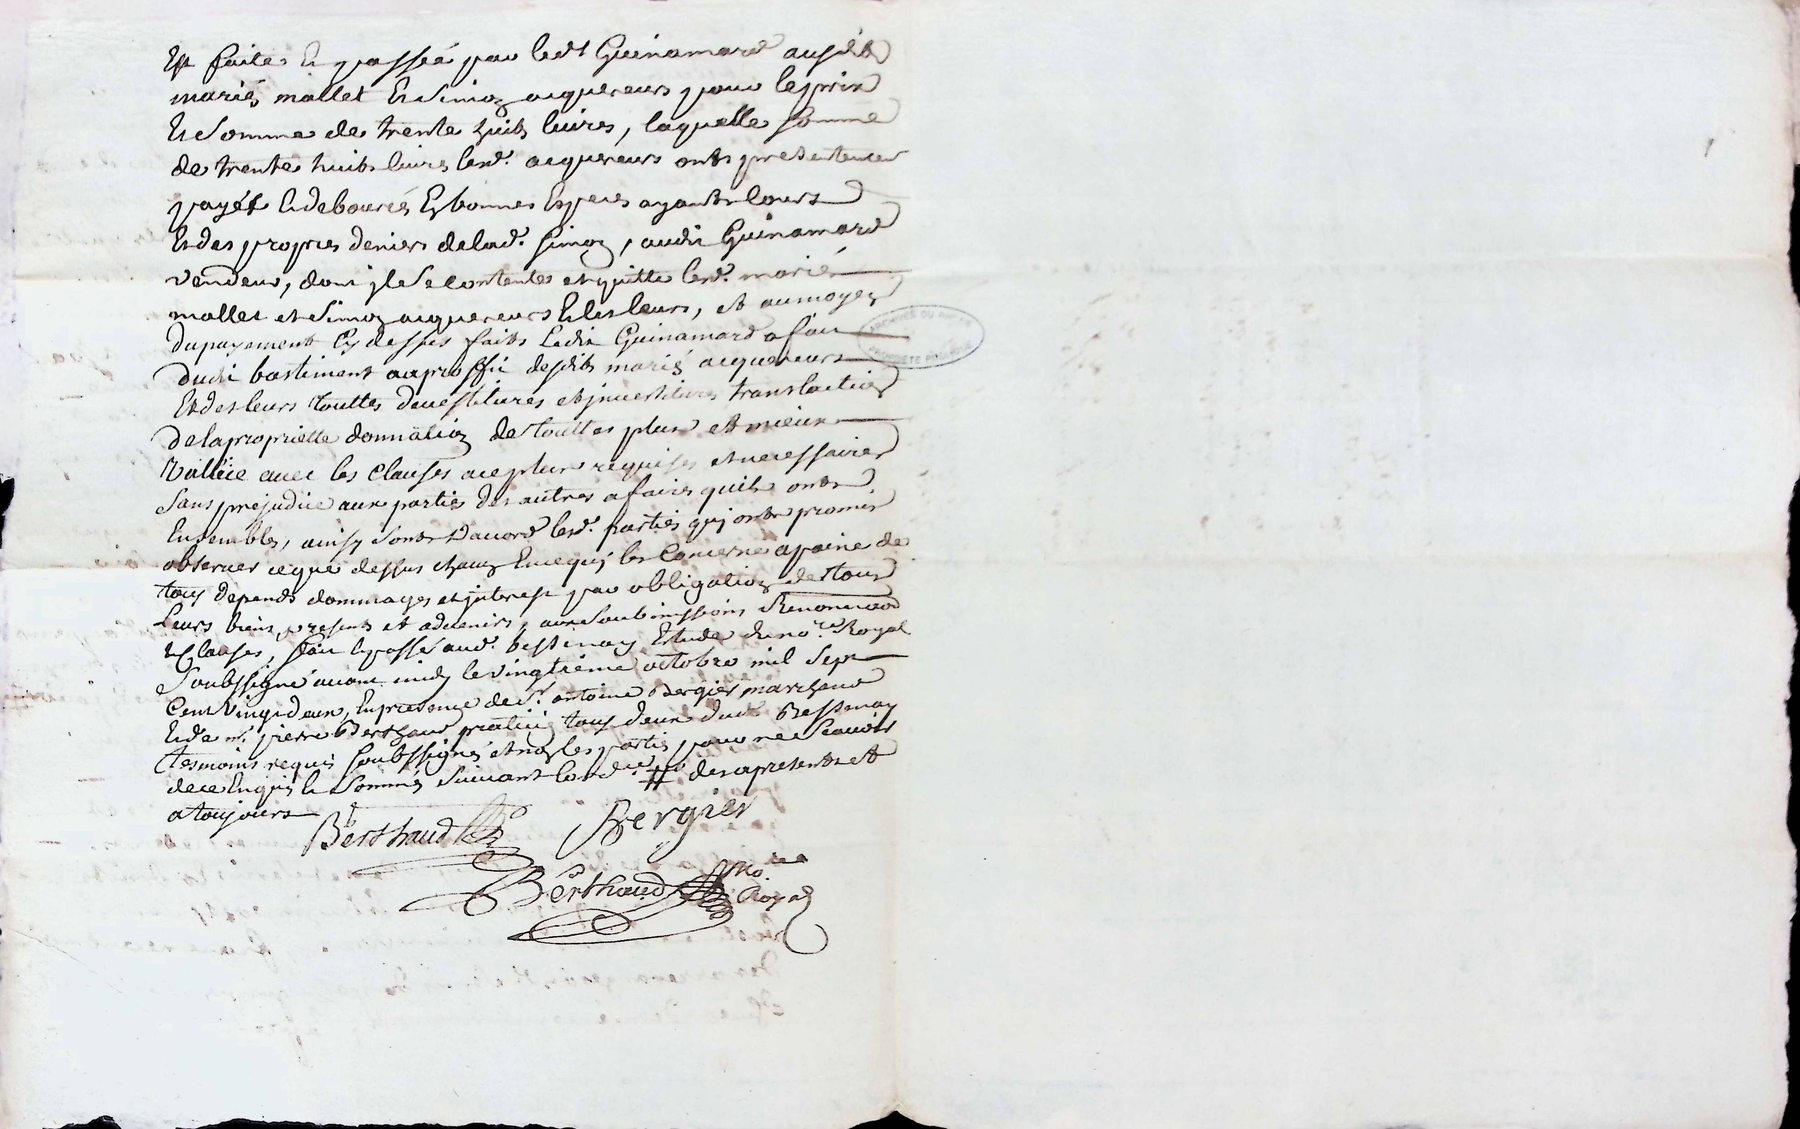 Est faite et passée par ledt Guinamard ausdits
mariés mallet Et Simoz acquereurs pour le prix
Et Somme de trente huits livres, laquelle somme
de trente huits livres lesd. acquereurs onts presentement
payés Et debourcés En bonnes Especes ayants cours
Et des propres deniers de lad. Simoz, audit Guinamard
vendeur, dont jl Se contente et quitte lesd. mariés
mallet et Simoz acquereurs Et les leurs, et aumoyen
du payement Cy dessus faits Ledit Guinamard a fait
dudit bastiment au proffit desdits mariés acquereurs
Et des leurs touttes devestitures et jnvestitures translation
de la propriette donnation de touttes plus et mieux
Vallüe avec les Clauses a ce plus requises et necessaires
Sans prejudice aux parties des autres afaires quils onts
Ensembles, ainsy Sonts D'acord lesd. parties quj onts promis
observer ce que dessus chacun En ce quj les Concerne a paine de
tous depends dommages et jnterest par obligation de tous
Leurs biens presents et advenirs, avec Soubmissions Renonciaon
& Clauses, fait et passé aud. bessenay Etude du no.re Royal
Soubssigné avant midy le vingtieme octobre mil Sept
Cent Vingt deux, En presence de Sr. antoine Bergier marchand
Et de mr. pierre Berthaud praticien tous deux dud. Bessenay
tesmoins requis Soubssignés et non les partis pour ne Scavoirs
de ce Enquis Et Sommés Suivant l'ord.ce # des apresents et
a toujours
Berthaud Bergier
Berthaud No.re
Royal
ARCHIVES DU RHÔNE